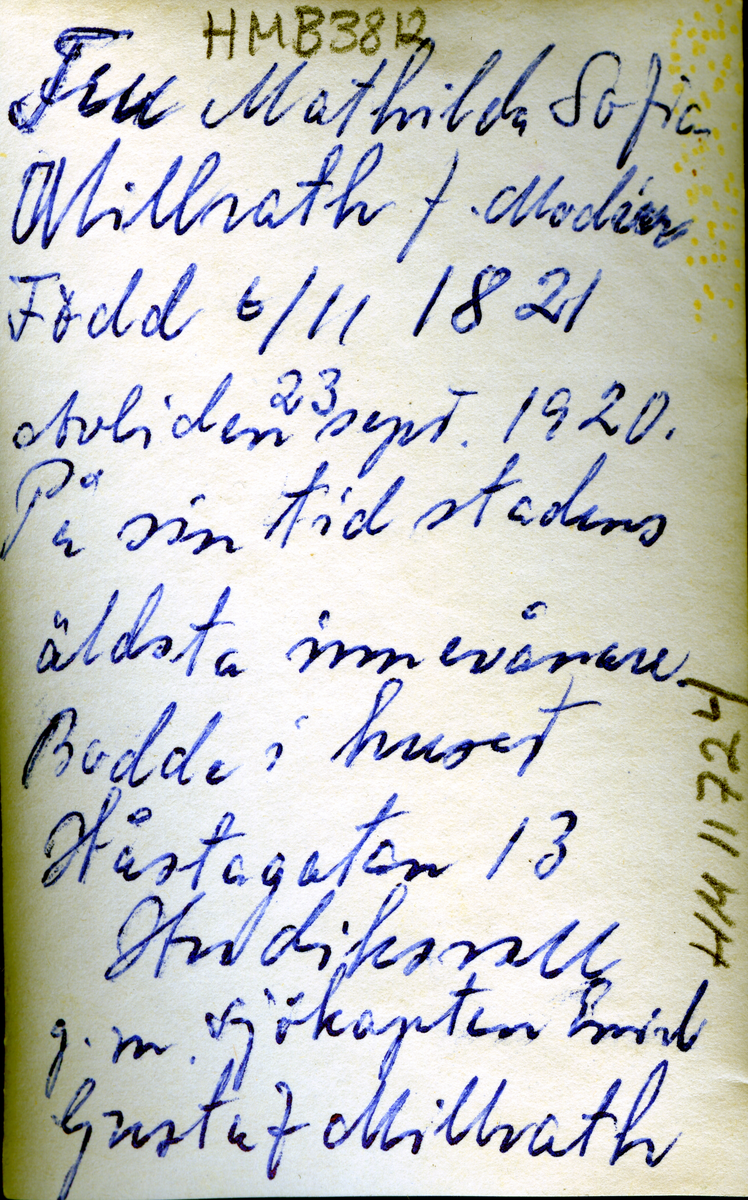 HMB3812
Fru Mathilda Sofia
Millrath f. Modéer
Född 6/11 1821
avliden 23 sept. 1920.
På sin tid stadens
äldsta innevånare.
Bodde i huset
Håstagatan 13
Hudiksvall
g. m. sjökapten Emil
Gustaf Millrath
HM 11724